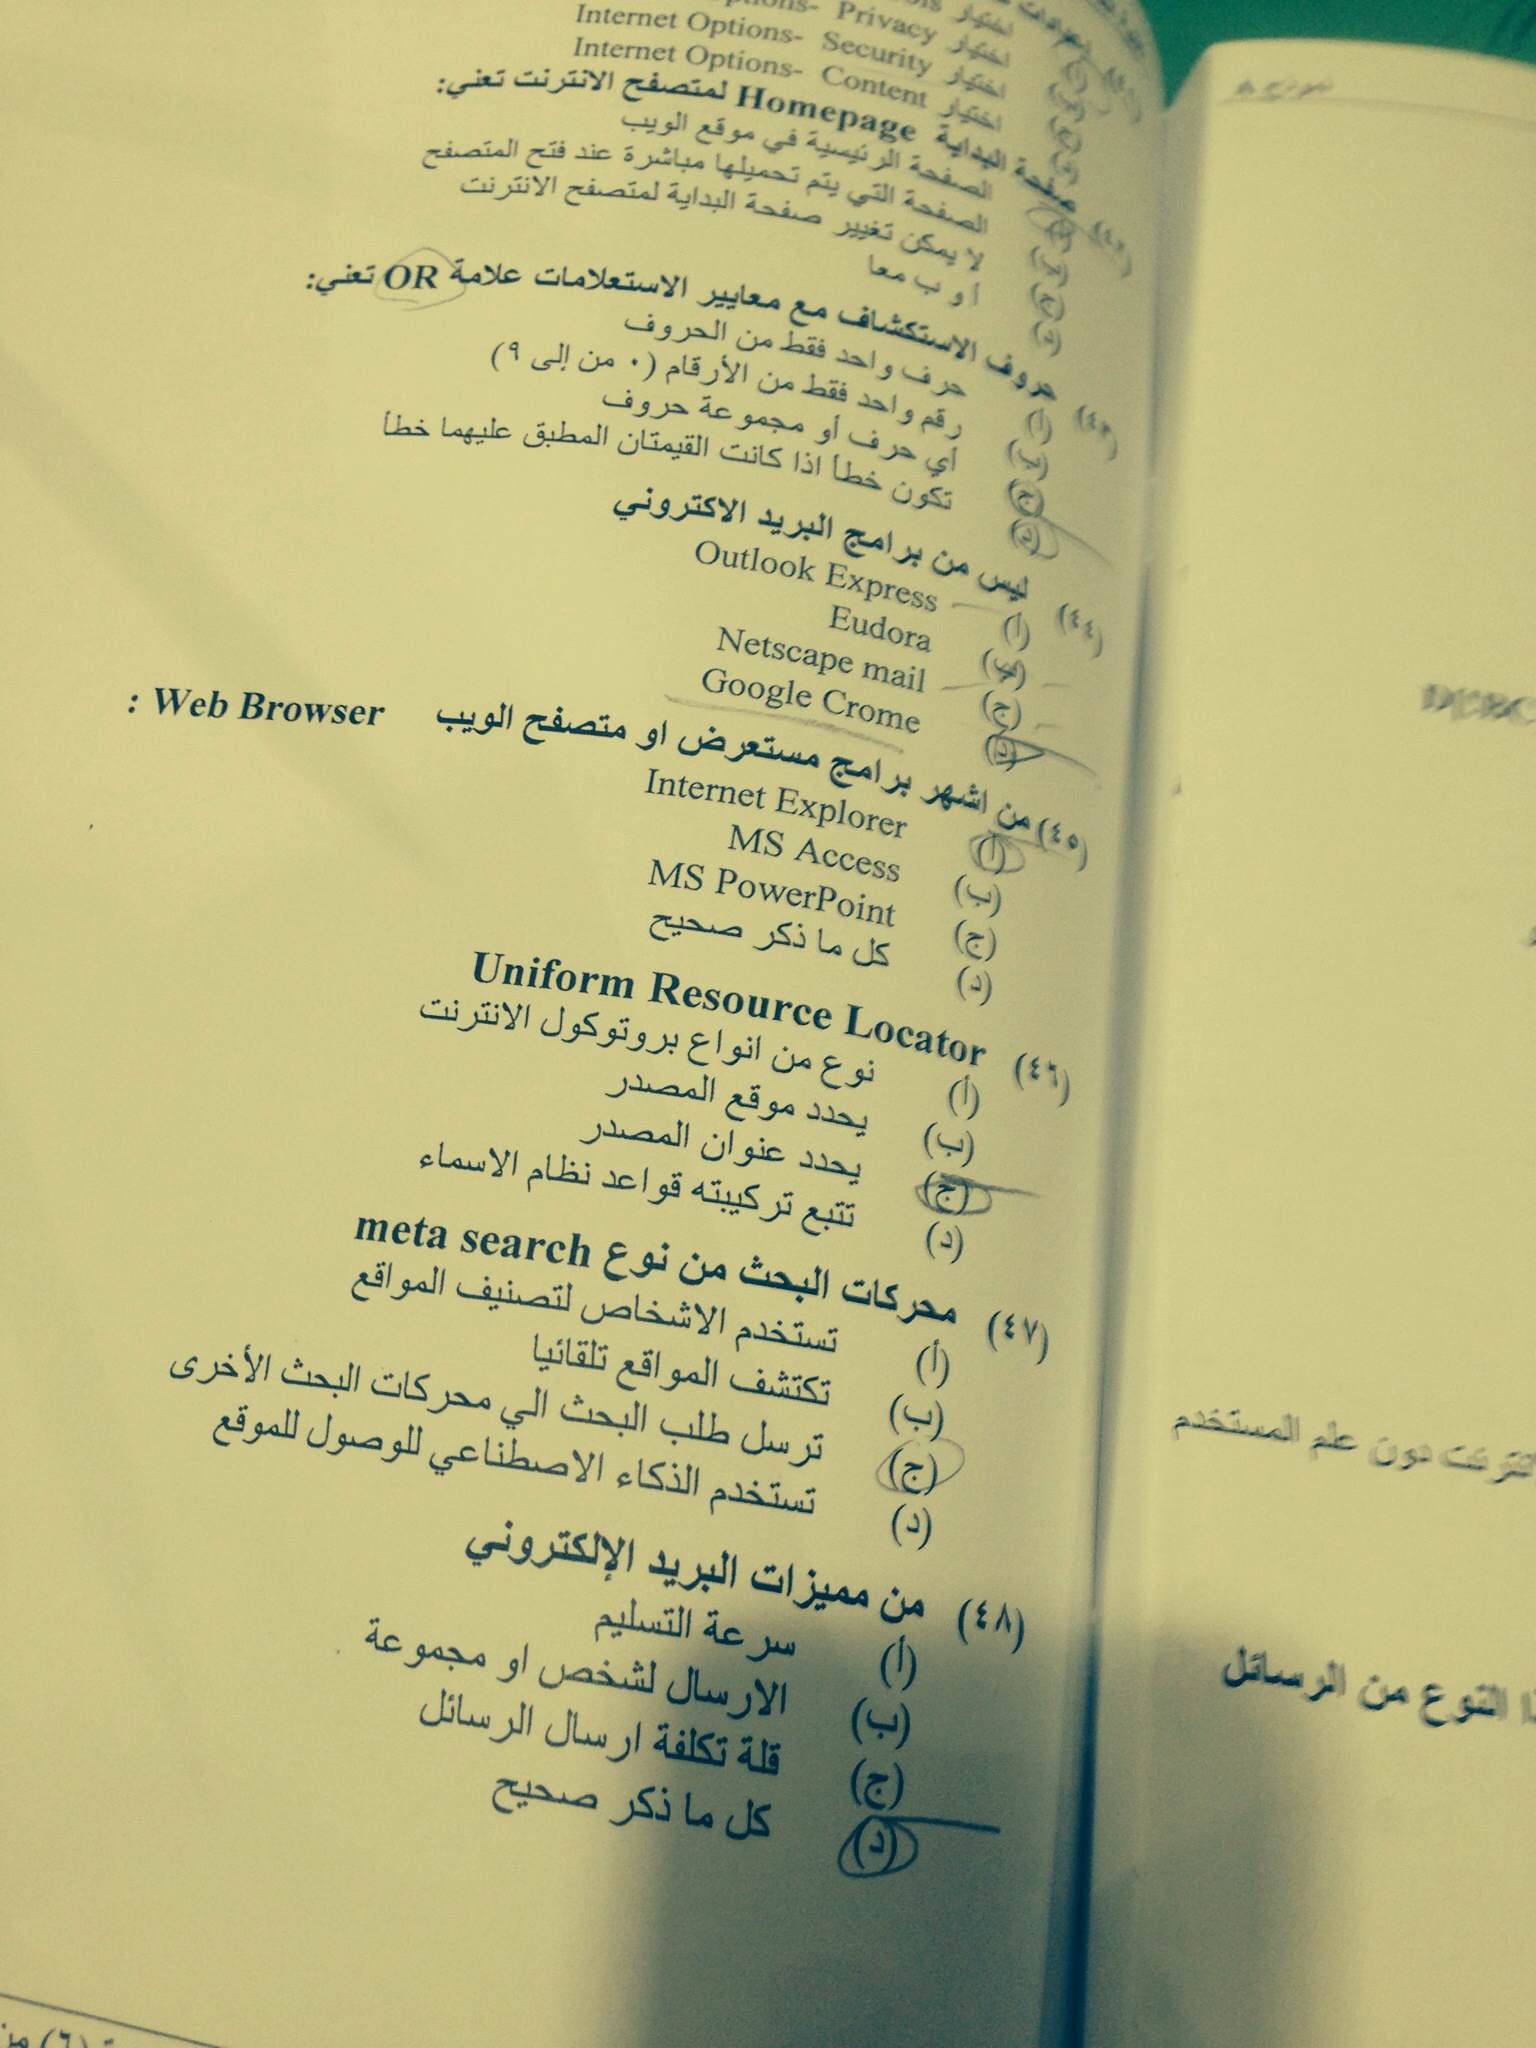 اختيار Privacy -Options
اختيار Security -Internet Options
اختيار Content -Internet Options
(٤٢) صفحة البداية Homepage لمتصفح الانترنت تعني:
(أ) الصفحة الرئيسية في موقع الويب
(ب) الصفحة التي يتم تحميلها مباشرة عند فتح المتصفح
(ج) لا يمكن تغيير صفحة البداية لمتصفح الانترنت
(د) أ و ب معا
(٤٣) حروف الاستكشاف مع معايير الاستعلامات علامة OR تعني:
(أ) حرف واحد فقط من الحروف
(ب) رقم واحد فقط من الأرقام (٠ من إلى ٩)
(ج) أي حرف أو مجموعة حروف
(د) تكون خطأ اذا كانت القيمتان المطبق عليهما خطأ
(٤٤) ليس من برامج البريد الاكتروني
(أ) Outlook Express
(ب) Eudora
(ج) Netscape mail
(د) Google Crome
(٤٥) من اشهر برامج مستعرض او متصفح الويب Web Browser :
(أ) Internet Explorer
(ب) MS Access
(ج) MS PowerPoint
(د) كل ما ذكر صحيح
(٤٦) Uniform Resource Locator
(أ) نوع من انواع بروتوكول الانترنت
(ب) يحدد موقع المصدر
(ج) يحدد عنوان المصدر
(د) تتبع تركيبته قواعد نظام الاسماء
(٤٧) محركات البحث من نوع meta search
(أ) تستخدم الاشخاص لتصنيف المواقع
(ب) تكتشف المواقع تلقائيا
(ج) ترسل طلب البحث الي محركات البحث الأخرى
(د) تستخدم الذكاء الاصطناعي للوصول للموقع
(٤٨) من مميزات البريد الإلكتروني
(أ) سرعة التسليم
(ب) الارسال لشخص او مجموعة
(ج) قلة تكلفة ارسال الرسائل
(د) كل ما ذكر صحيح
(٦) من
دون علم المستخدم
النوع من الرسائل